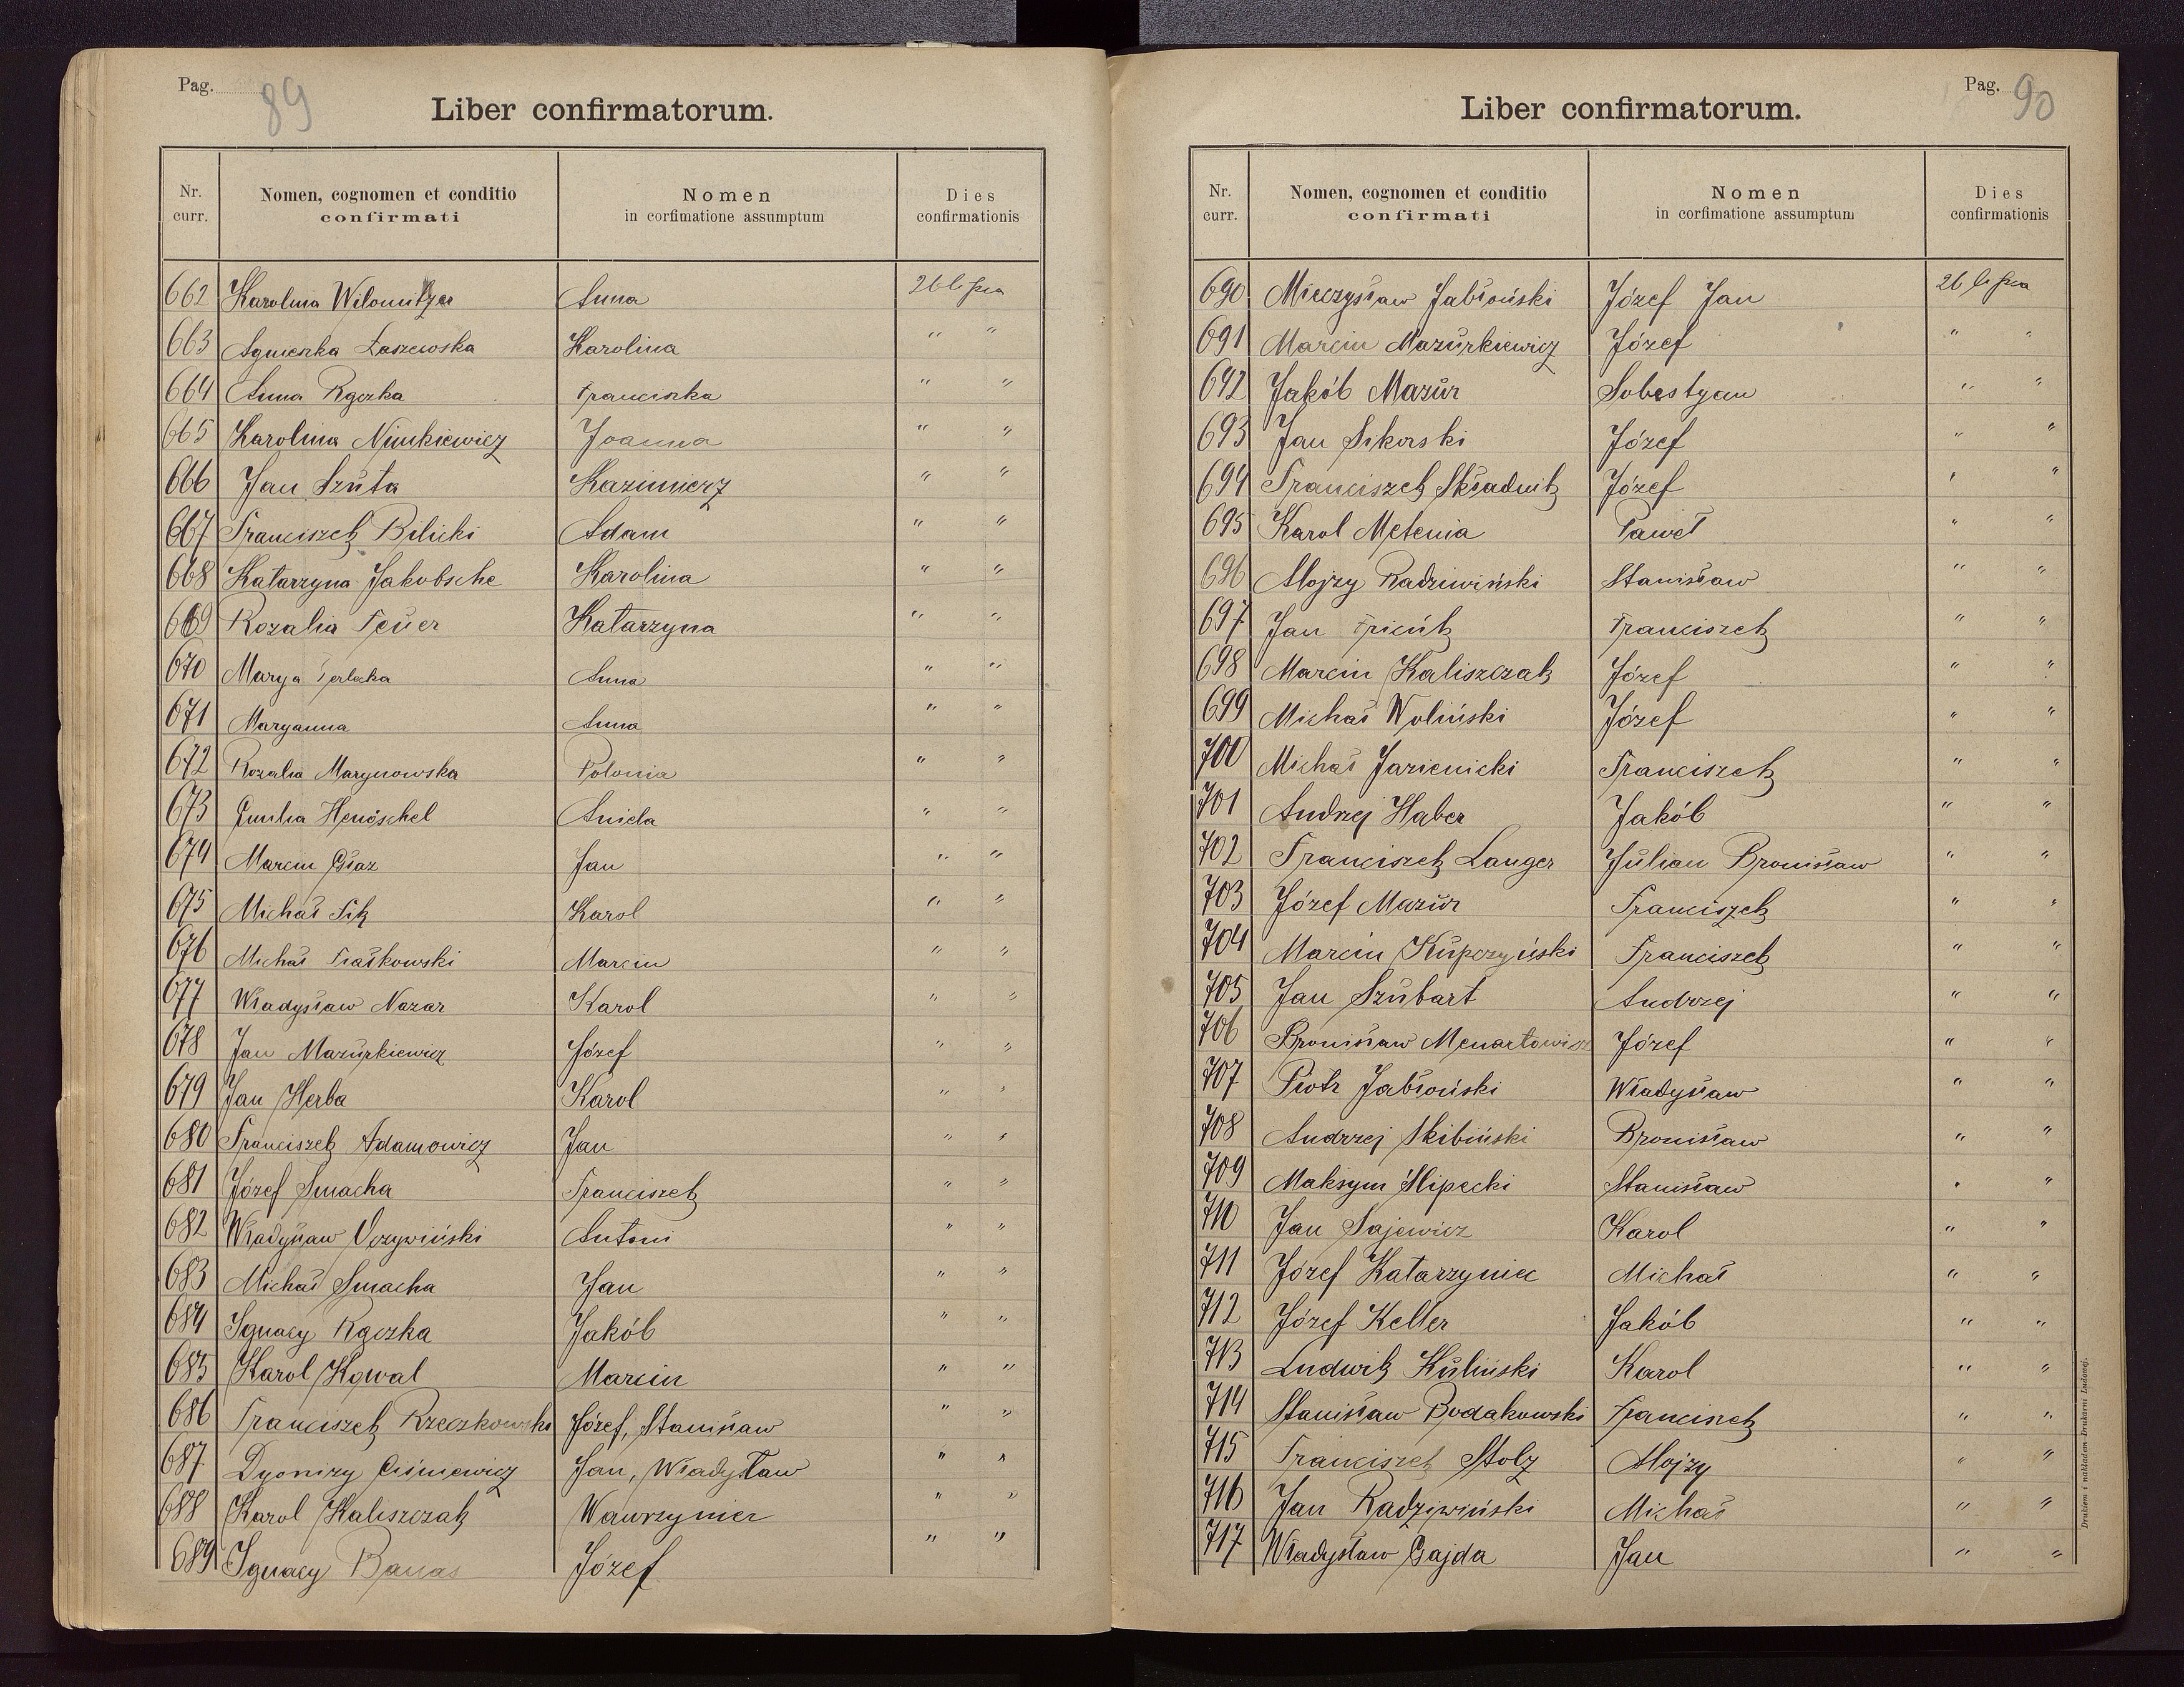 Pag. 89
Liber confirmatorum.
Nr. curr.
Nomen, cognomen et conditio confirmati
Nomen in corfimatione assumptum
Dies confirmationis
662 Karolina Anna 26 lipca
663 Agnieszka Łaszewska Karolina " "
664 Anna Rączka Franciszka " "
665 Karolina Nimkiewicz Joanna " "
666 Jan Szuta Kazimierz " "
667 Franciszek Bilicki Adam " "
668 Katarzyna Jakobsche Karolina " "
669 Rozalia Feuer Katarzyna " "
670 Marya Terlecka Anna " "
671 Maryanna Anna " "
672 Rozalia Marynowska Polonia " "
673 Emilia Henöschel Aniela " "
674 Marcin Jan " "
675 Michał Karol " "
676 Michał Marcin " "
677 Władysław Nazar Karol " "
678 Jan Mazurkiewicz Józef " "
679 Jan Herba Karol " "
680 Franciszek Adamowicz Jan " "
681 Józef Smacha Franciszek " "
682 Władysław Antoni " "
683 Michał Smacha Jan " "
684 Ignacy Rączka Jakób " "
685 Karol Kowal Marcin " "
686 Franciszek Rzeczkowski Józef, Stanisław " "
687 Dyonizy Ciśniewicz Jan, Władysław " "
688 Karol Kaliszczak Wawrzyniec " "
689 Ignacy Banas Józef " "
Pag. 90
Liber confirmatorum.
Nr. curr.
Nomen, cognomen et conditio confirmati
Nomen in corfimatione assumptum
Dies confirmationis
690 Mieczysław Jabłoński Józef Jan 26 lipca
691 Marcin Mazurkiewicz Józef " "
692 Jakób Mazur Sobestyan " "
693 Jan Sikorski Józef " "
694 Franciszek Składnik Józef " "
695 Karol Metenia Paweł " "
696 Alojzy Radziwiński Stanisław " "
697 Jan Franciszek " "
698 Marcin Kaliszczak Józef " "
699 Michał Woliński Józef " "
700 Michał Jazienicki Franciszek " "
701 Andrzej Haber Jakób " "
702 Franciszek Langer Julian Bronisław " "
703 Józef Mazur Franciszek " "
704 Marcin Kupczyński Franciszek " "
705 Jan Szubart Andrzej " "
706 Bronisław Menartowicz Józef " "
707 Piotr Jabłoński Władysław " "
708 Andrzej Skibiński Bronisław " "
709 Maksym Ślipecki Stanisław " "
710 Jan Sajewicz Karol " "
711 Józef Katarzyniec Michał " "
712 Józef Keller Jakób " "
713 Ludwik Kuliński Karol " "
714 Stanisław Bodakowski Franciszek " "
715 Franciszek Stolz Alojzy " "
716 Jan Radziwiński Michał " "
717 Władysław Gajda Jan " "
Drukiem i nakładem Drukarni Ludowej.